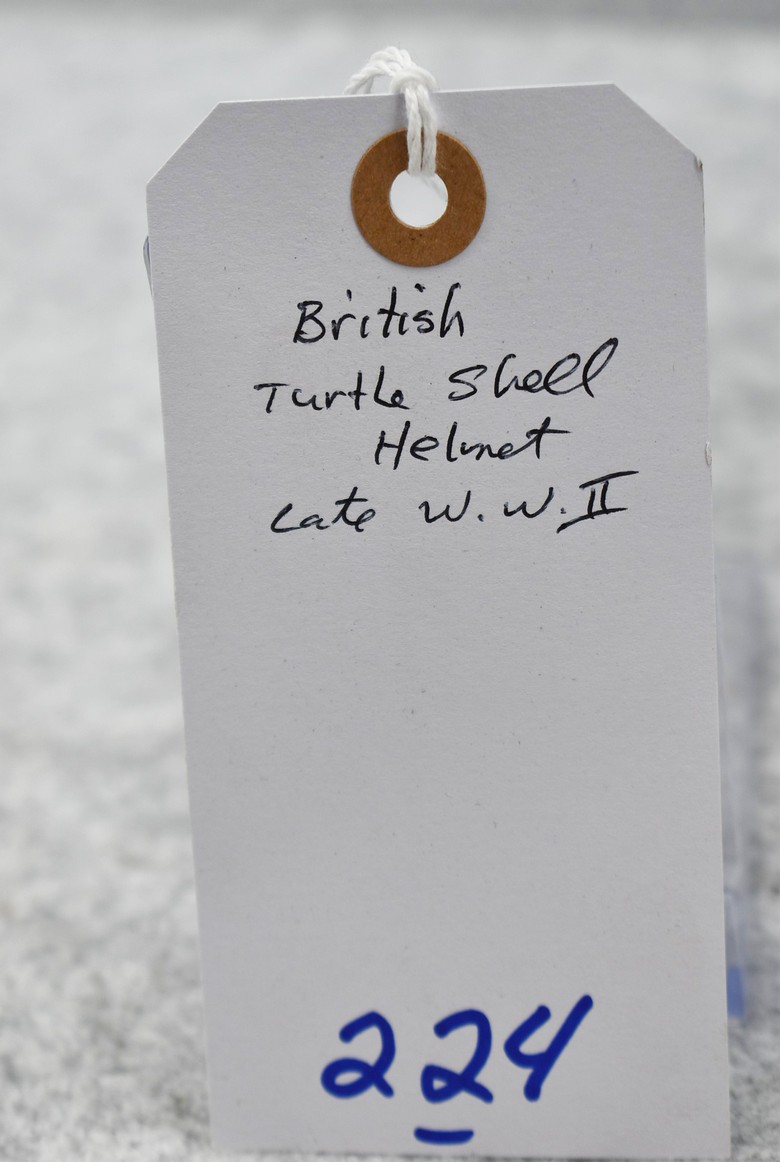 British
Turtle Shell
Helmet
Late W.W.II
224